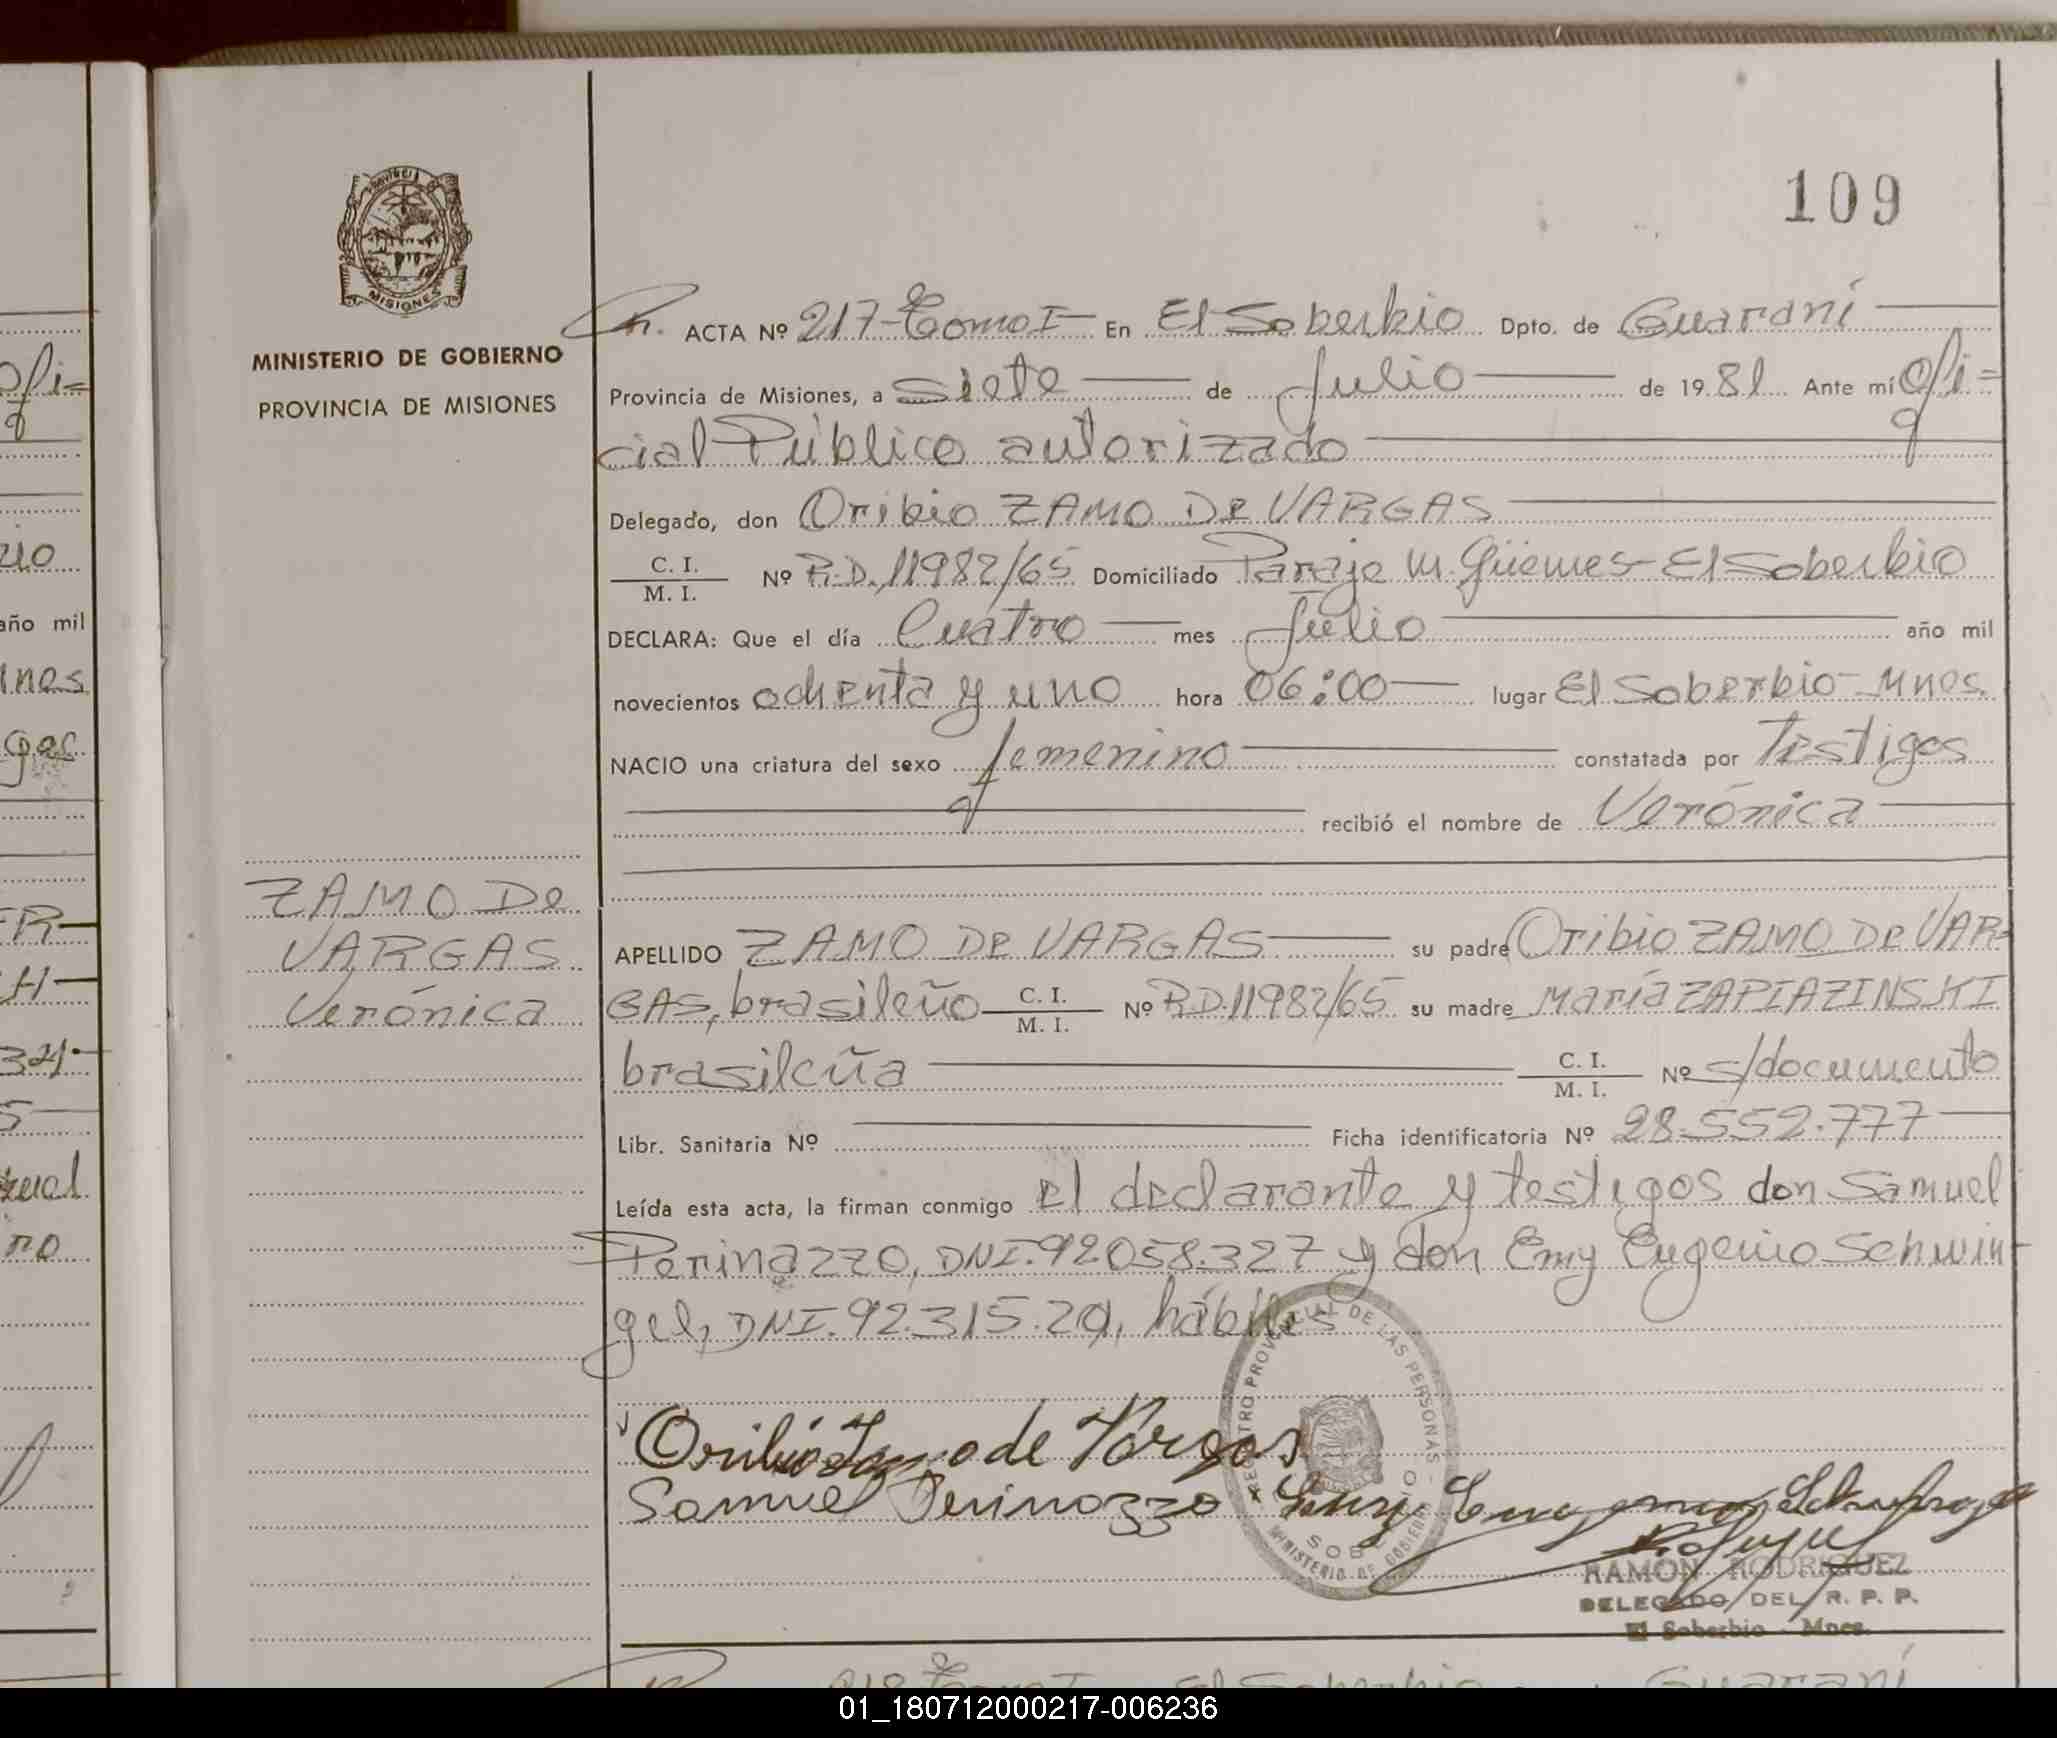 109
MINISTERIO DE GOBIERNO
PROVINCIA DE MISIONES
MISIONES
ACTA Nº 217-Tomo I- En El Soberbio Dpto. de Guaraní
Provincia de Misiones, a siete de Julio de 1981 Ante mí Ofi=
cial Público autorizado
Delegado, don Oribio ZAMO De VARGAS
C. I. / M. I. Nº R.D.11982/65 Domiciliado Paraje M. Güemes-El Soberbio
DECLARA: Que el día Cuatro mes Julio año mil
novecientos ochenta y uno hora 06:00 lugar El Soberbio-Mnes.
NACIO una criatura del sexo femenino constatada por Testigos
recibió el nombre de Verónica
ZAMO De
VARGAS
Verónica
APELLIDO ZAMO De VARGAS su padre Oribio ZAMO De VAR=
GAS, brasileño C. I. / M. I. Nº R.D.11982/65 su madre María ZAPIAZINSKI
brasileña C. I. / M. I. Nº s/documento
Libr. Sanitaria Nº Ficha identificatoria Nº 28.552.777
Leída esta acta, la firman conmigo el declarante y testigos don Samuel
Perinazzo, DNI.92058.327 y don Emy Eugenio Schwin-
gel, DNI.92.315.201, hábiles
REGISTRO PROVINCIAL DE LAS PERSONAS
MINISTERIO DE GOBIERNO
Oribio Zamo de Vargas
Samuel Perinazzo
RAMON RODRIGUEZ
DELEGADO DEL R. P. P.
El Soberbio - Mnes.
218 Tomo I El Soberbio Guaraní
01_180712000217-006236